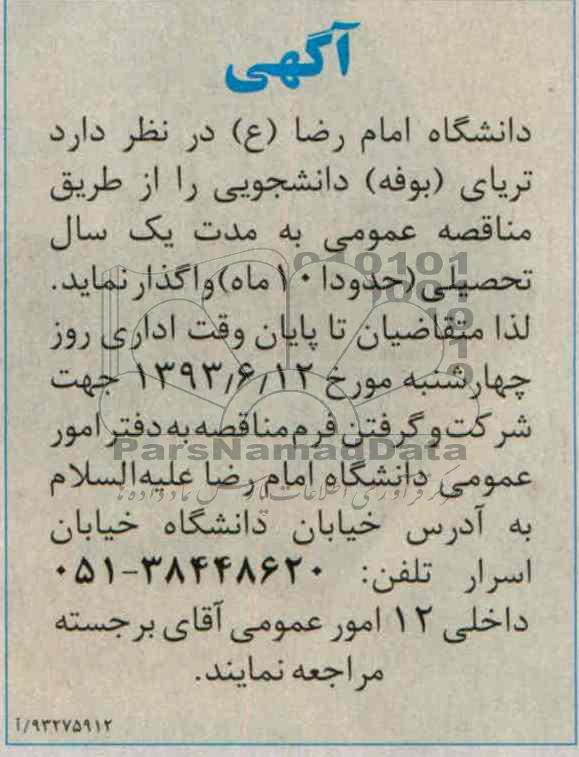 آگهی
دانشگاه امام رضا (ع) در نظر دارد
تریای (بوفه) دانشجویی را از طریق
مناقصه عمومی به مدت یک سال
تحصیلی(حدودا ۱۰ ماه)واگذار نماید.
لذا متقاضیان تا پایان وقت اداری روز
چهارشنبه مورخ ۱۳۹۳/۶/۱۲ جهت
شرکت و گرفتن فرم مناقصه به دفتر امور
ParsNamadData
عمومی دانشگاه امام رضا علیه‌السلام
به آدرس خیابان دانشگاه خیابان
اسرار تلفن: ۳۸۴۴۸۶۲۰-۰۵۱
داخلی ۱۲ امور عمومی آقای برجسته
مراجعه نمایند.
۹۳۲۷۵۹۱۲/آ